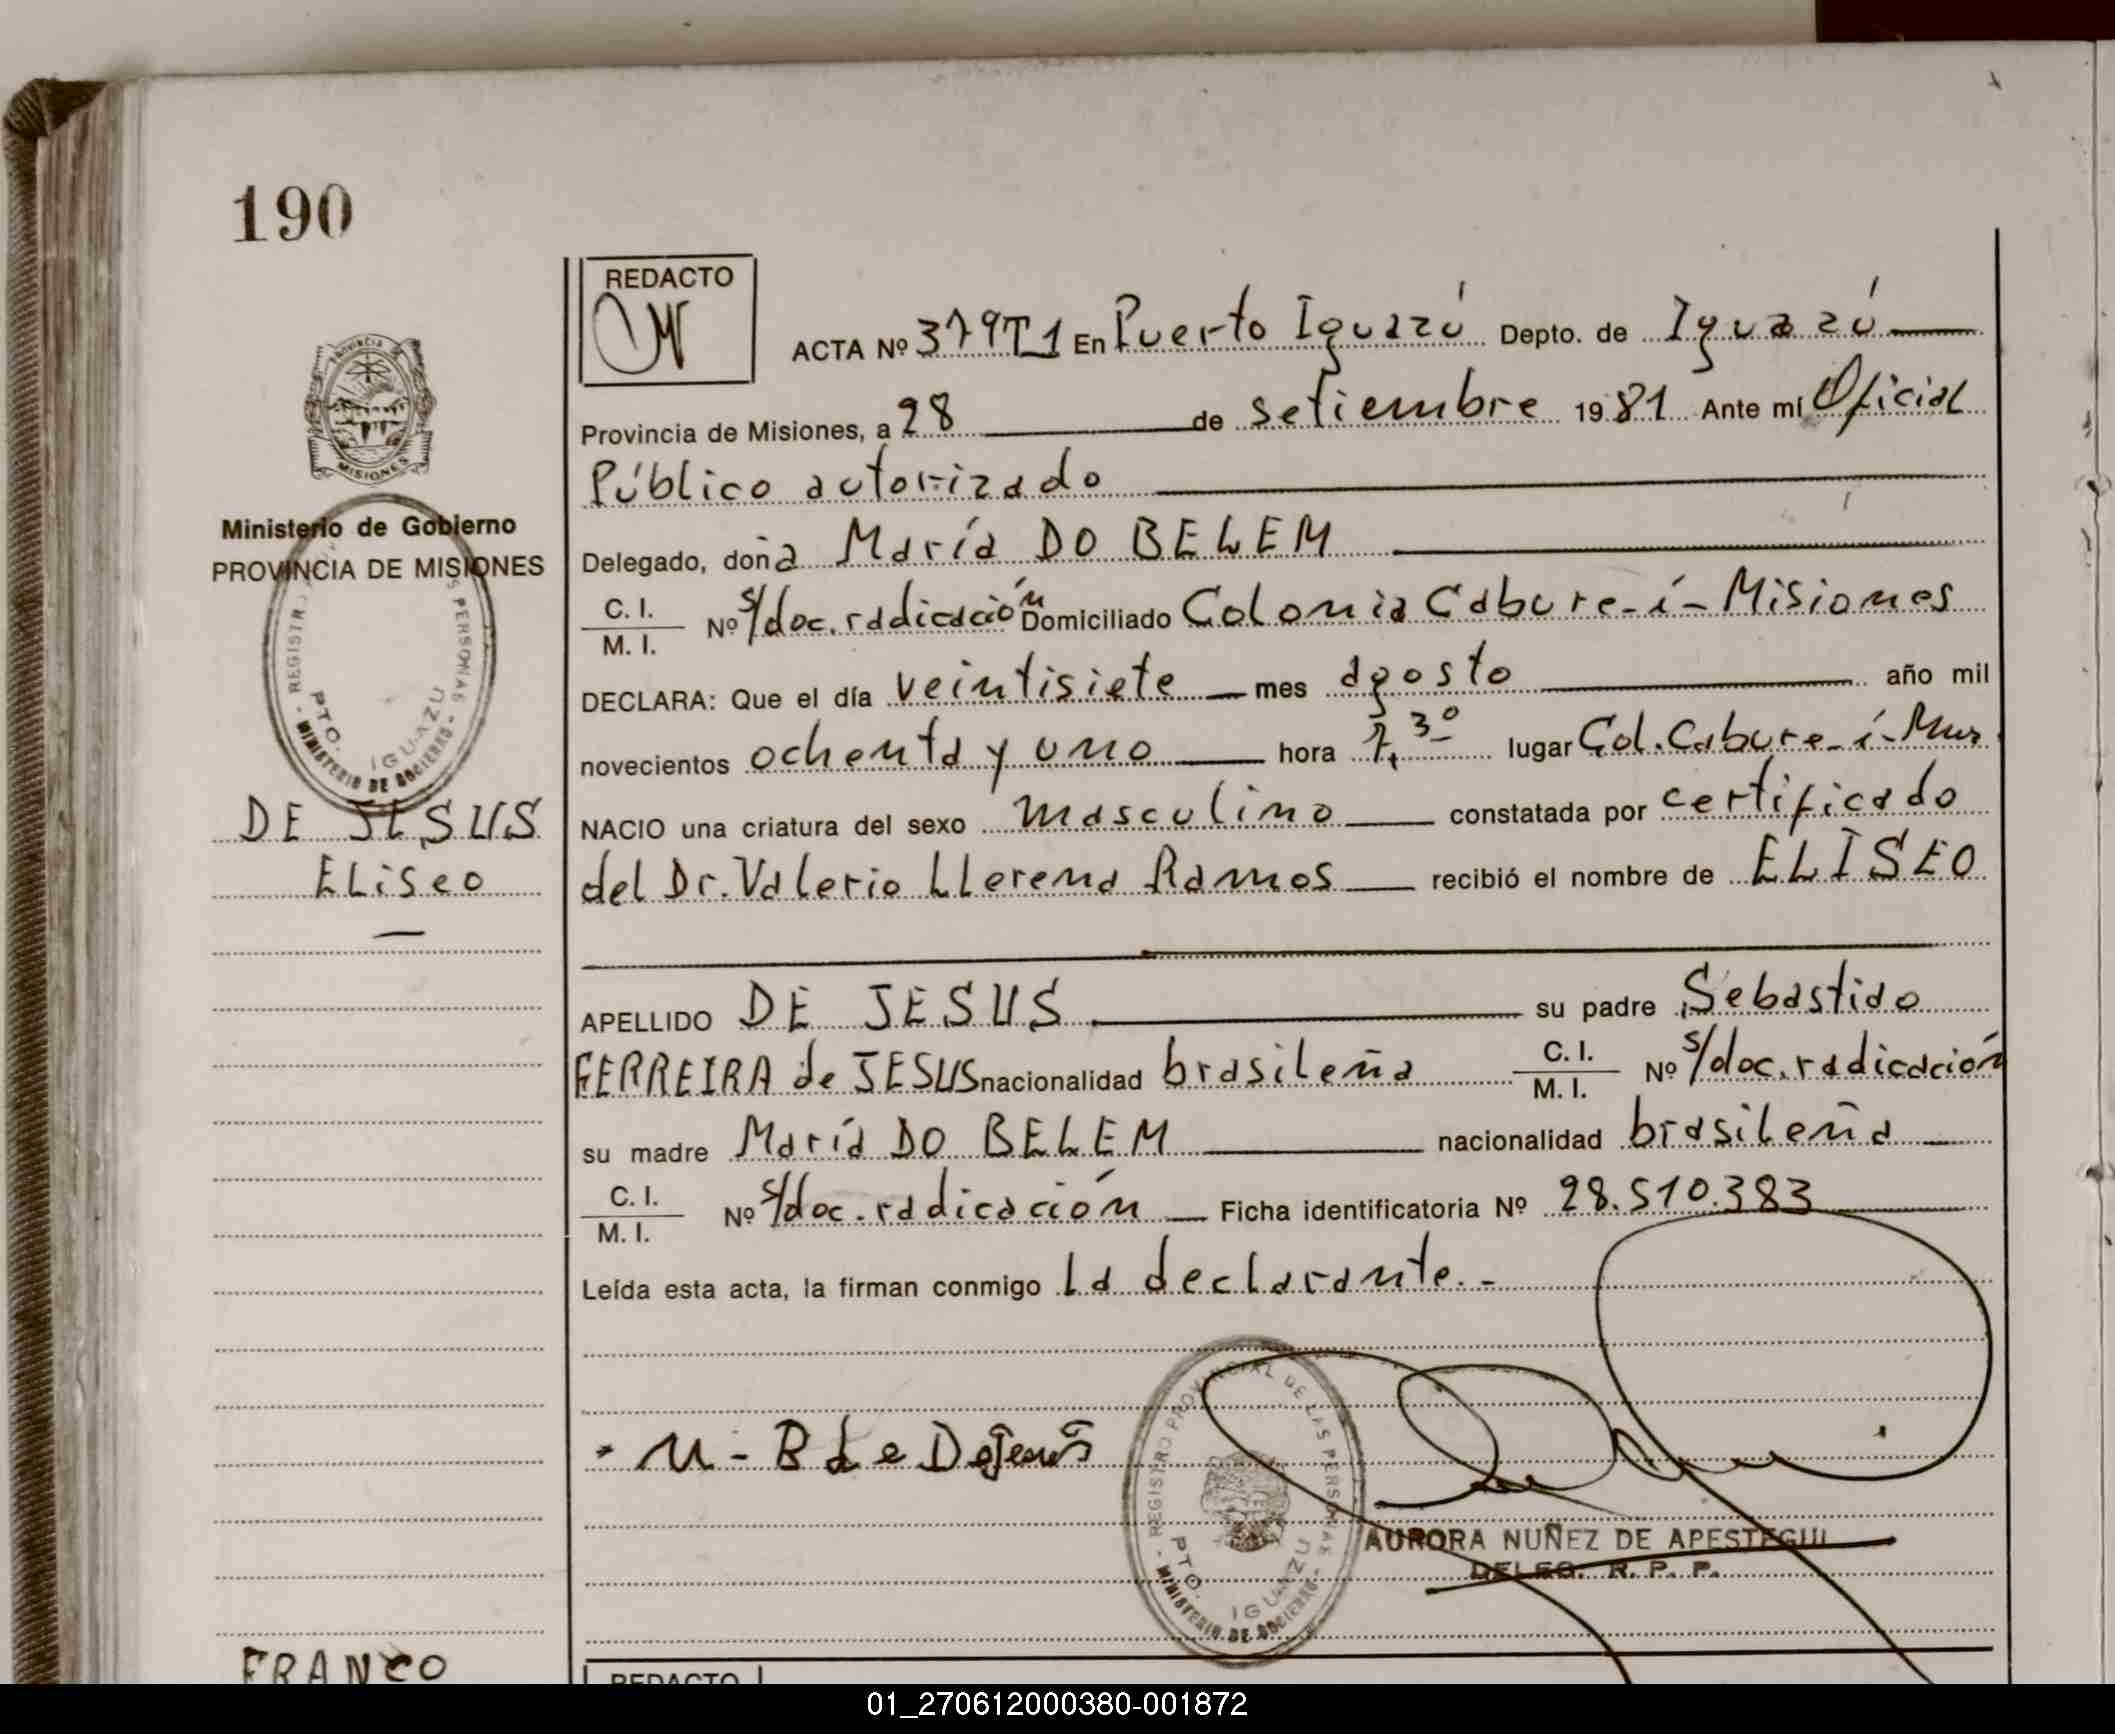 190
REDACTO
ACTA Nº 379T1 En Puerto Iguazú Depto. de Iguazú
Provincia de Misiones, a 28 de setiembre 1981 Ante mí Oficial
Público autorizado
PROVINCIA DE
MISIONES
Ministerio de Gobierno
PROVINCIA DE MISIONES
Delegado, doña María DO BELEM
C. I.
M. I.
Nº s/doc. radicación Domiciliado Colonia Cabure-í-Misiones
DECLARA: Que el día veintisiete mes agosto año mil
novecientos ochenta y uno hora 7,30 lugar Col. Cabure-í-
PERSONAS
PTO. IGUAZU
MINISTERIO DE GOBIERNO
DE JESUS
ELiseo
NACIO una criatura del sexo masculino constatada por certificado
del Dr. Valerio Llerena Ramos recibió el nombre de ELISEO
APELLIDO DE JESUS su padre Sebastiao
FERREIRA de JESUS nacionalidad brasileña C. I. M. I. Nº s/doc. radicación
su madre María DO BELEM nacionalidad brasileña
C. I.
M. I.
Nº s/doc. radicación Ficha identificatoria Nº 28.510.383
Leída esta acta, la firman conmigo la declarante.-
REGISTRO PROVINCIAL DE LAS PERSONAS
PTO. IGUAZU
MINISTERIO DE GOBIERNO
AURORA NUÑEZ DE APESTEGUI
DELEG. R. P. P.
FRANCO
REDACTO
01_270612000380-001872